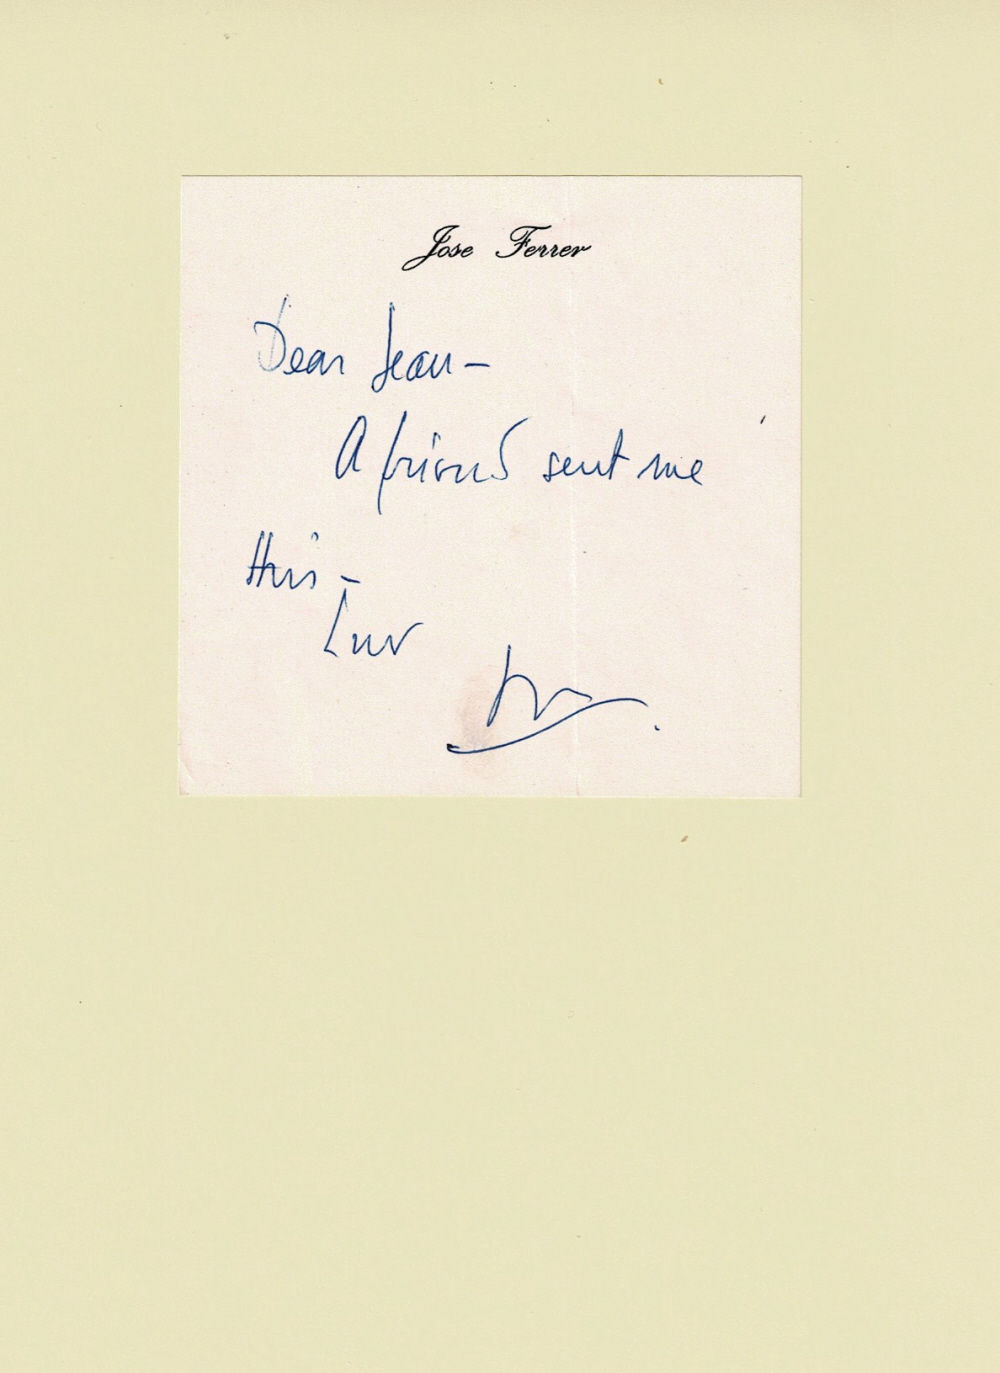 Jose Ferrer
Dear Jean –
A friend sent me
this –
Luv